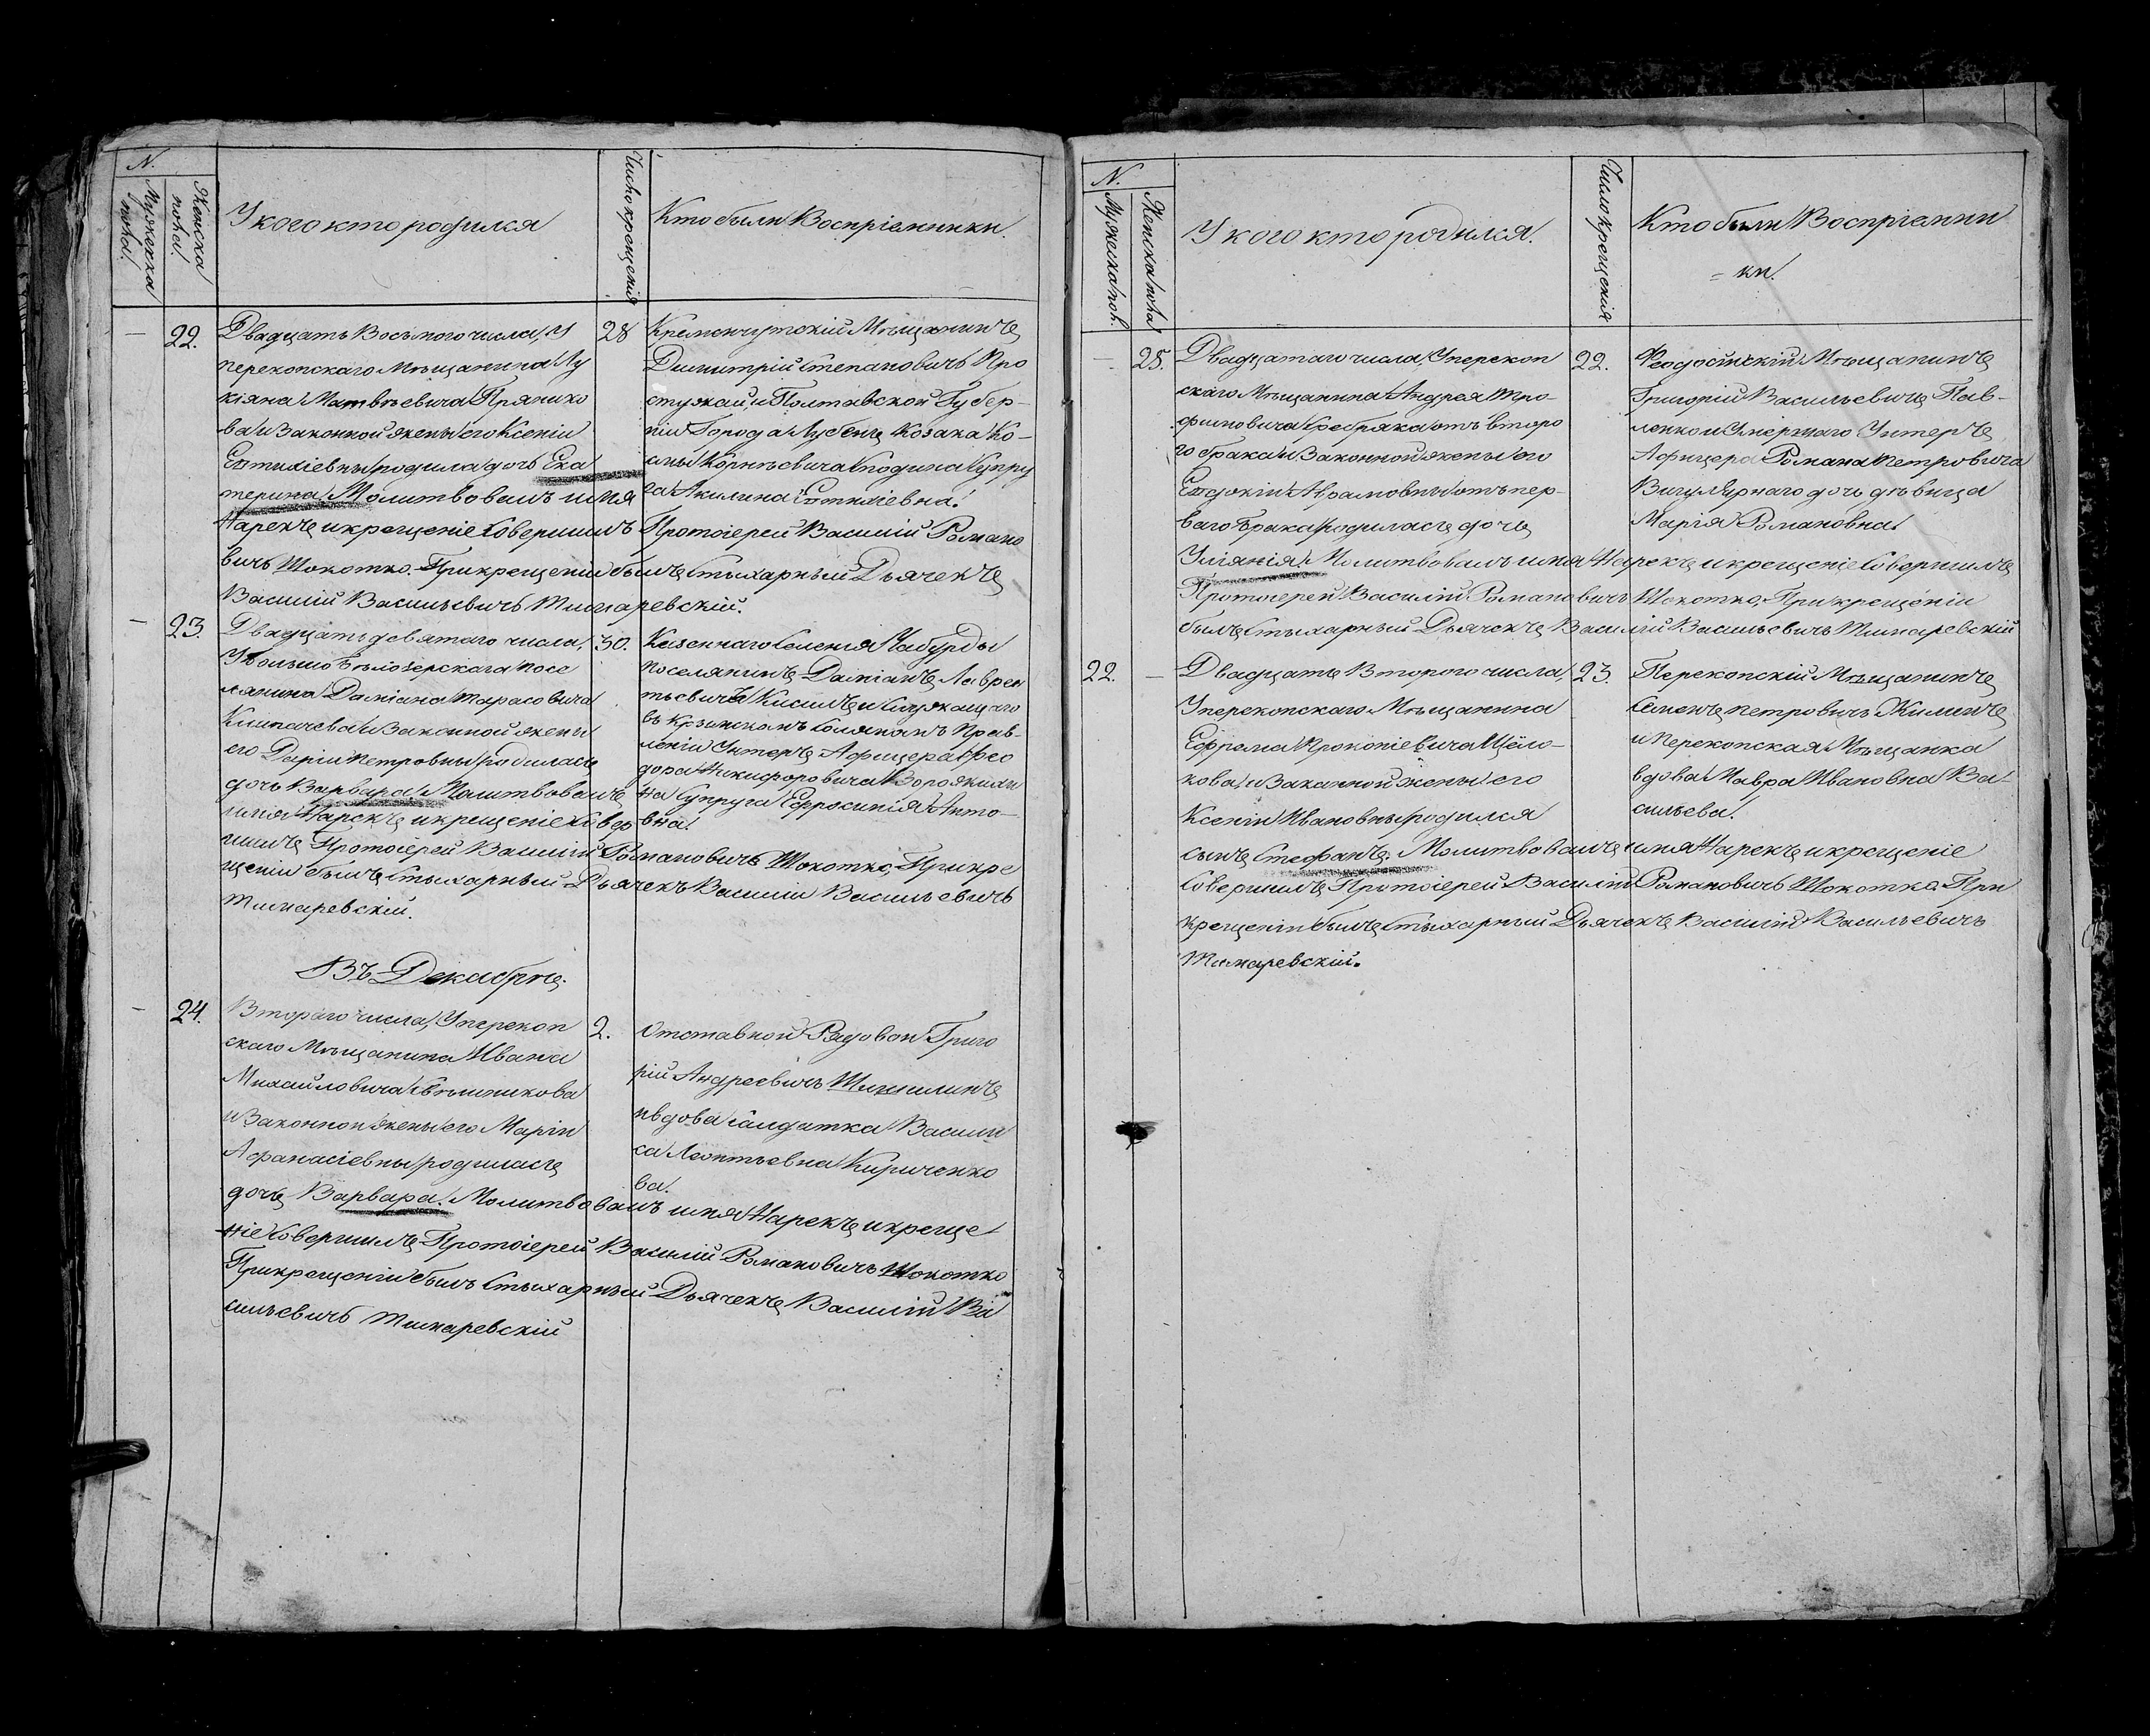 N.
Мужеска пола.
Женска пола.
У кого кто родился
Число крещенія
Кто были Воспріемники.
— 22.
Двадцать Восьмого числа, у
перекопскаго Мѣщанина Лу
кіяна Матвѣевича Прянико
ва и Законной жены его Ксеніи
Евтихіевны родила дочь Ека
терина Молитвовалъ имя
Нарекъ и крещеніе Совершилъ Протоіерей Василій Романо
вичъ Шокотко. При крещеніи былъ Стихарный Дьячекъ
Василій Васильевичъ Тимаревскій.
28
Кременчугскій Мѣщанинъ
Димитрій Степановичъ Про
и Полтавской Губер-
ніи Города Лубенъ Козака Ко-
Корнѣевича Супру
га Акилина Евтихіевна.
— 23.
Двадцать девятаго числа,
У Большо Бѣлозерскаго посе
лянина Даміана Тарасовича
Клипачева и Законной жены
его Даріи Петровны родилась
дочь Варвара. Молитвовалъ
имя Нарекъ и крещеніе Совер
шилъ Протоіерей Василій Романовичъ Шокотко, При кре
щеніи былъ Стихарный Дьячекъ Василій Васильевичъ
Тимаревскій.
30.
Казеннаго Селенія Чабурды
Поселянинъ Даміанъ Лаврен
тьевичъ Кисилъ и Служащаго
въ Крымскомъ Соляномъ Прав-
леніи Унтеръ Афицера Фео
дора Никифоровича Ворожики
на Супруга Ефросинія Анто-
вна.
Въ Декабрѣ.
— 24.
Втораго числа, У перекоп
скаго Мѣщанина Ивана
Михайловича
и Законной жены его Маріи
Афанасіевны родилась
дочь Варвара. Молитвовалъ имя Нарекъ и креще
ніе Совершилъ Протоіерей Василій Романовичъ Шокотко
При крещеніи былъ Стихарный Дьячекъ Василій Ва
сильевичъ Тимаревскій
2.
Отставной Рядовой Григо
рій Андреевичъ Шишилинъ
и вдова Салдатка Васили
са Леонтьевна Кириченко
ва.
N.
Мужеска пол.
Женска пола
У кого кто родился.
Число Крещенія
Кто были Воспріемни
= ки.
— 25.
Двадцатаго числа, У перекоп
скаго Мѣщанина Андрея Тро-
фимовича Сребряка отъ второ
го брака и Законной жены его
Евдокіи Абрамовны отъ пер-
ваго брака родилась дочь
Уліянія. Молитвовалъ имя Нарекъ и крещеніе Совершилъ
Протоіерей Василій Романовичъ Шокотко, При крещеніи
былъ Стихарный Дьячекъ Василій Васильевичъ Тимаревскій
22.
Феодосійскій Мѣщанинъ
Григорій Васильевичъ Пав-
ленко и Умершаго Унтеръ
Афицера Романа Петровича
Вигулярнаго дочь дѣвица
Марія Романовна.
22. —
Двадцать Второго числа,
У перекопскаго Мѣщанина
Ефрема Прокопіевича Щёло-
кова, и Законной жены его
Ксеніи Ивановны родился
сынъ Стефанъ. Молитвовалъ имя Нарекъ и крещеніе
Совершилъ Протоіерей Василій Романовичъ Шокотко. При
крещеніи былъ Стихарный Дьячекъ Василій Васильевичъ
Тимаревскій.
23.
Перекопскій Мѣщанинъ
Семенъ Петровичъ Жилинъ
и Перекопская Мѣщанка
вдова Мавра Ивановна Ва-
сильева.